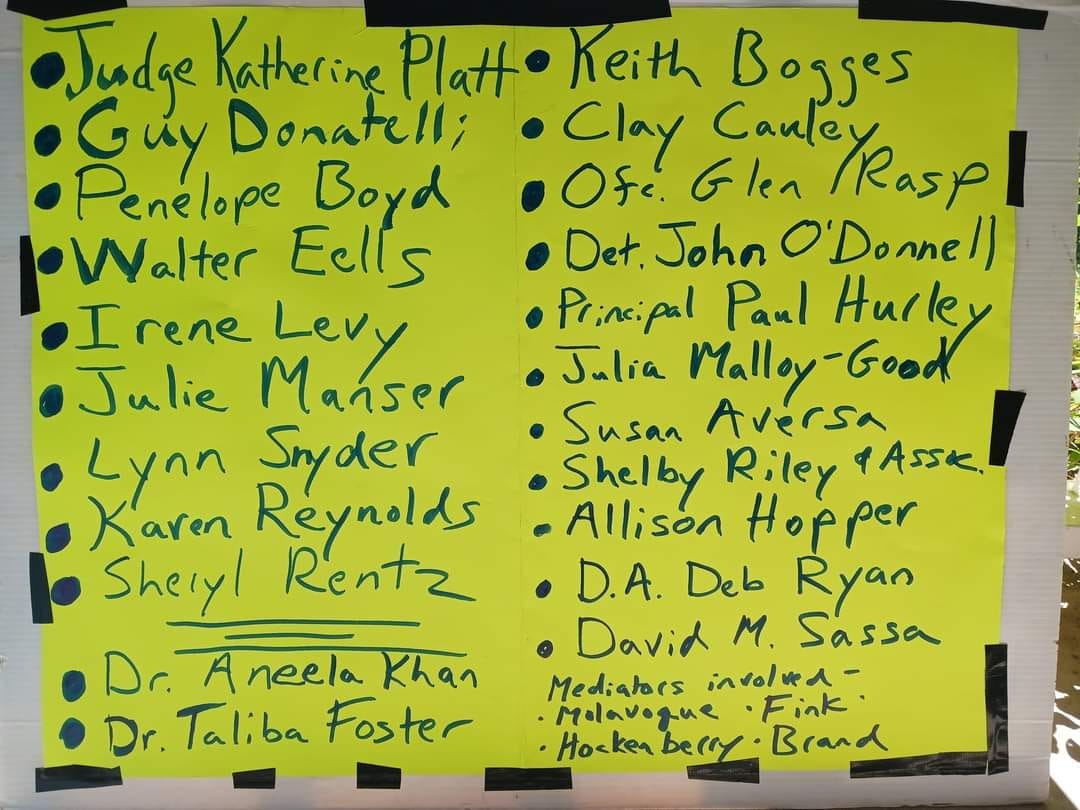 • Judge Katherine Platt
• Guy Donatelli
• Penelope Boyd
• Walter Eells
• Irene Levy
• Julie Manser
• Lynn Snyder
• Karen Reynolds
• Sheryl Rentz
• Dr. Aneela Khan
• Dr. Taliba Foster
• Keith Bogges
• Clay Cauley
• Ofc. Glen /Rasp
• Det. John O'Donnell
• Principal Paul Hurley
• Julia Malloy-Good
• Susan Aversa
• Shelby Riley & Assoc.
• Allison Hopper
• D.A. Deb Ryan
• David M. Sassa
Mediators involved -
• Molavogue • Fink
• Hockenberry • Brand